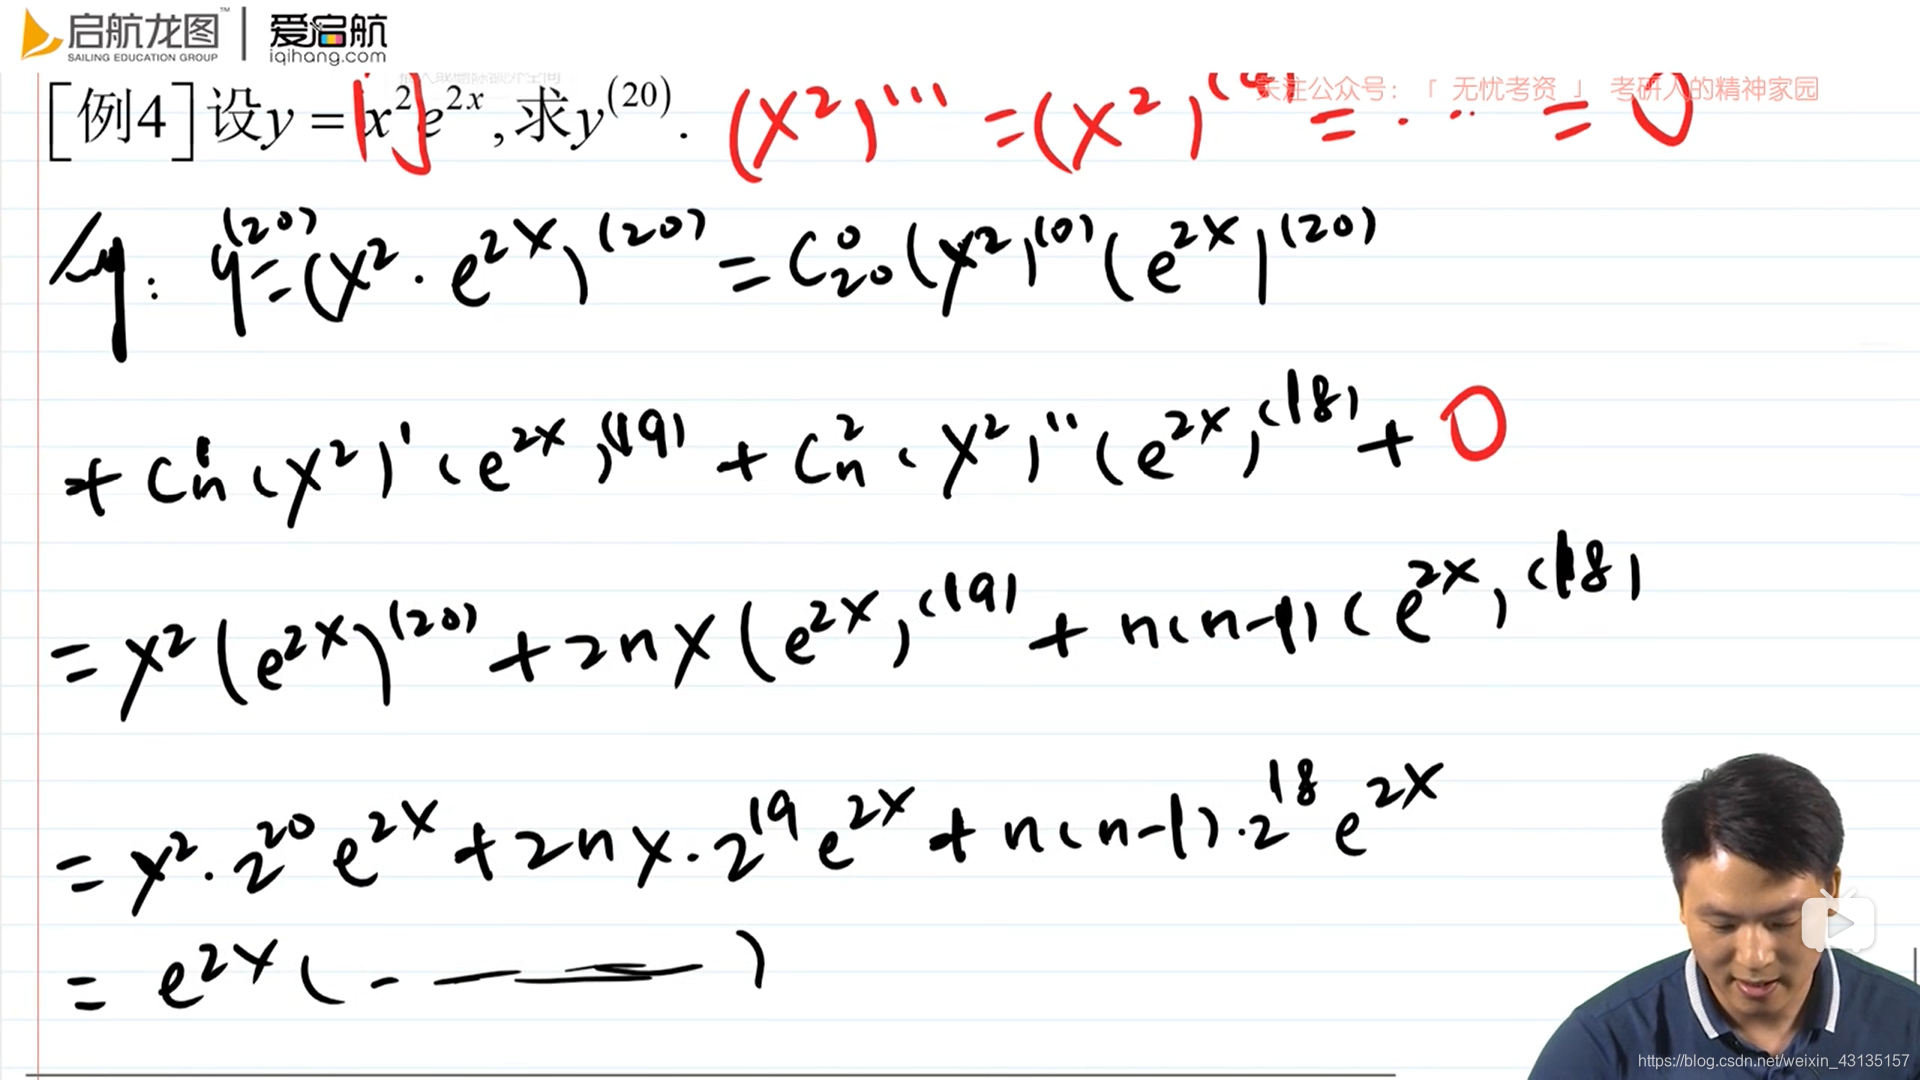 启航龙图 | 爱启航
SAILING EDUCATION GROUP iqihang.com
关注公众号：「 无忧考资 」 考研人的精神家园
[例4] 设y = x²e^{2x}, 求y^{(20)}. (x²)''' = (x²)^{(4)} = ⋯ = 0
y^{(20)} = (x² · e^{2x})^{(20)} = C_{20}^{0} (x²)^{(0)} (e^{2x})^{(20)}
+ C_n^1 (x²)' (e^{2x})^{(19)} + C_n^2 (x²)'' (e^{2x})^{(18)} + 0
= x² (e^{2x})^{(20)} + 2nx (e^{2x})^{(19)} + n(n-1) (e^{2x})^{(18)}
= x² · 2^{20} e^{2x} + 2nx · 2^{19} e^{2x} + n(n-1) · 2^{18} e^{2x}
= e^{2x} ( - — — )
https://blog.csdn.net/weixin_43135157